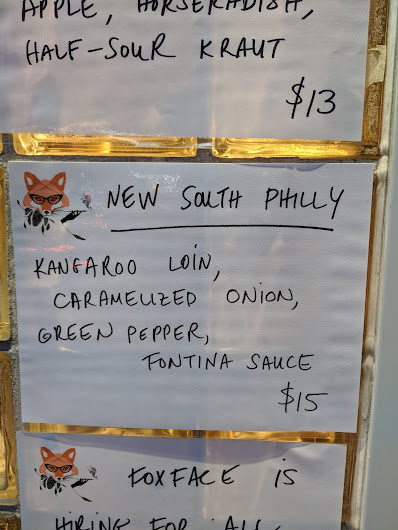 APPLE, HORSERADISH,
HALF-SOUR KRAUT
$13
NEW SOUTH PHILLY
KANGAROO LOIN,
CARAMELIZED ONION,
GREEN PEPPER,
FONTINA SAUCE
$15
FOXFACE IS
HIRING FOR ALL